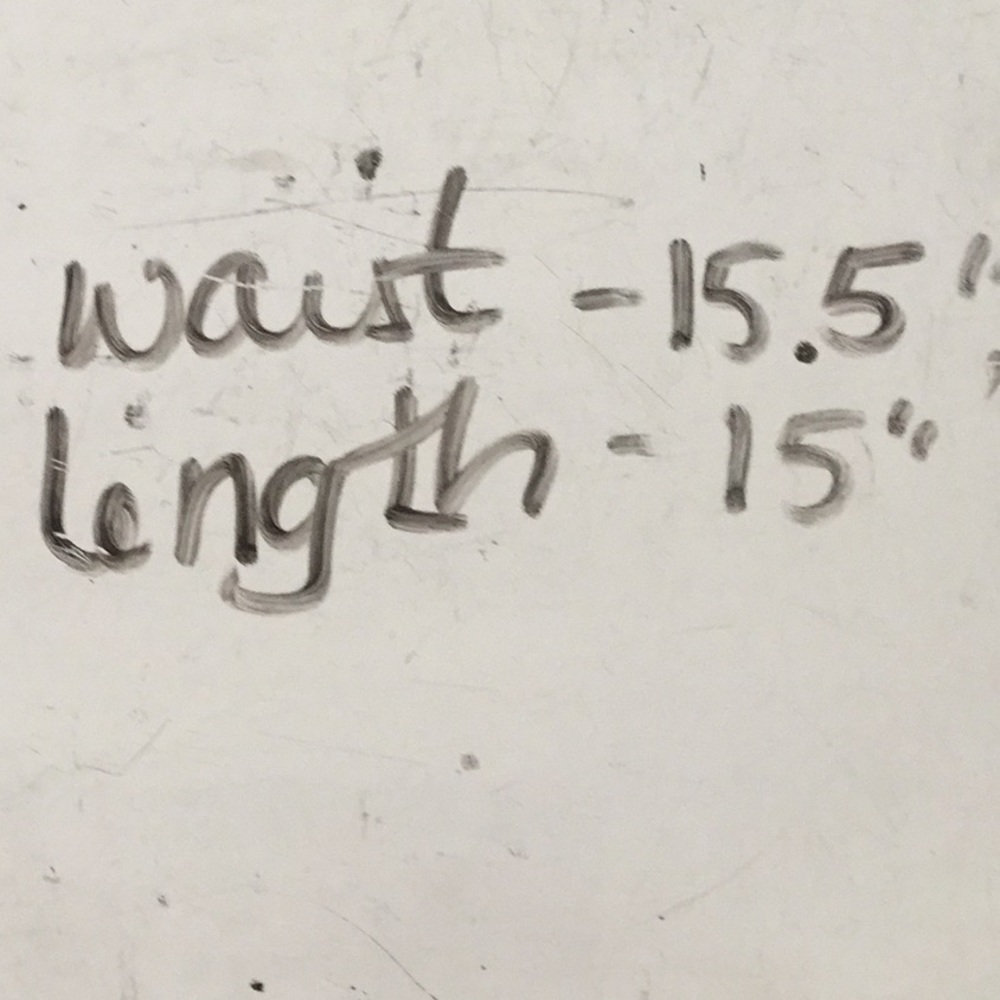 waist - 15.5"
length - 15"